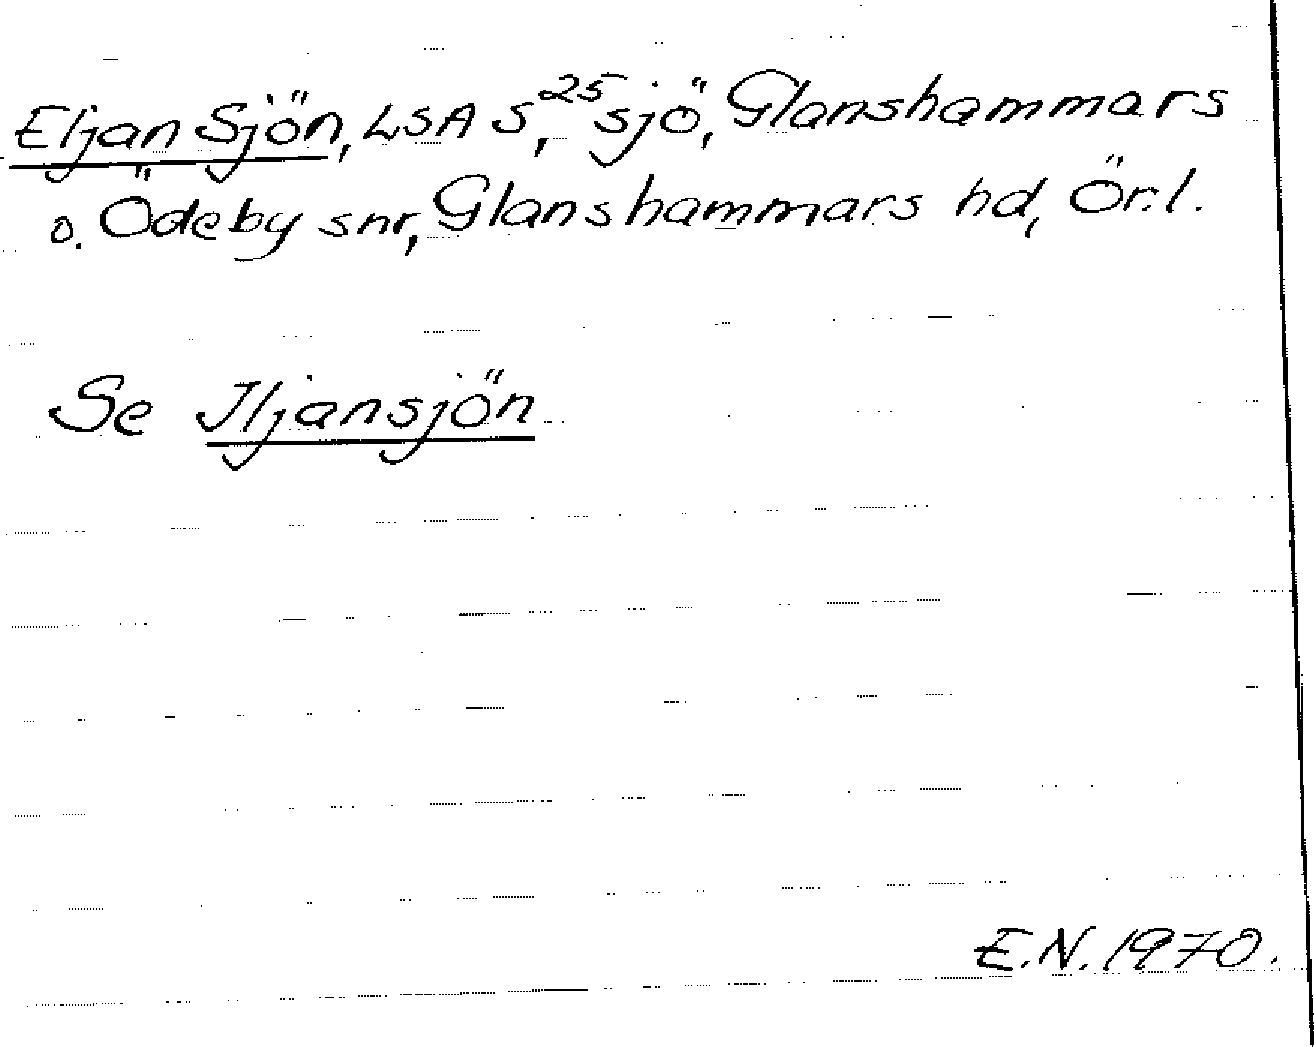 Eljan Sjön, LSA S,²⁵ sjö, Glanshammars
o. Ödeby snr, Glanshammars hd, Ör.l.
Se Iljansjön
E.N. 1970.